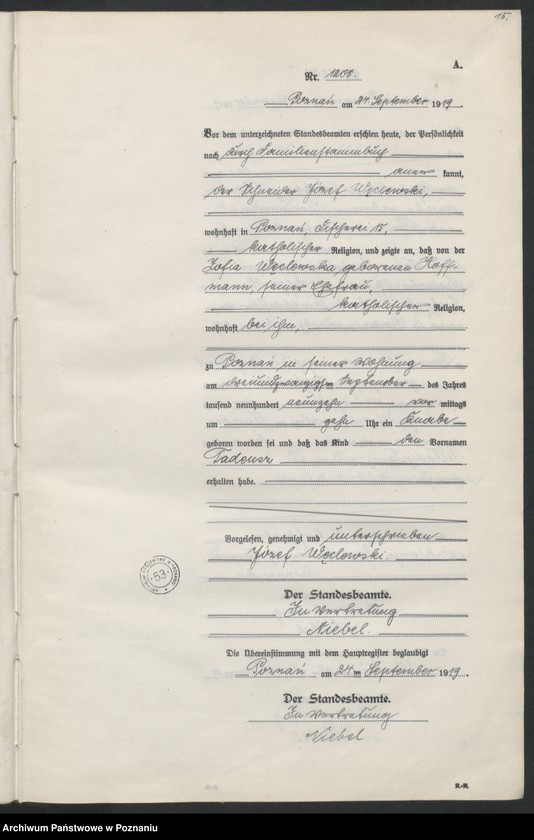 15.
A.
Nr. 1208
Poznań am 24. September 1919.
Vor dem unterzeichneten Standesbeamten erschien heute, der Persönlichkeit
nach durch Familienstammbuch
aner kannt,
der Schneider Józef Węclewski,
wohnhaft in Poznań, Fischerei 15,
katholischer Religion, und zeigte an, daß von der
Zofia Węclewska, geborenen Hoff-
mann, seiner Ehefrau,
katholischer Religion,
wohnhaft bei ihm,
zu Poznań in seiner Wohnung
am dreiundzwanzigsten September des Jahres
tausend neunhundert neunzehn vor mittags
um zehn Uhr ein Knabe
geboren worden sei und daß das Kind den Vornamen
Tadeusz
erhalten habe.
Vorgelesen, genehmigt und unterschrieben
Józef Węclewski.
Der Standesbeamte.
In Vertretung
Niebel.
Die Übereinstimmung mit dem Hauptregister beglaubigt
Poznań am 24 ten September 1919.
Der Standesbeamte.
In Vertretung
Niebel
53
R.-R.
Archiwum Państwowe w Poznaniu